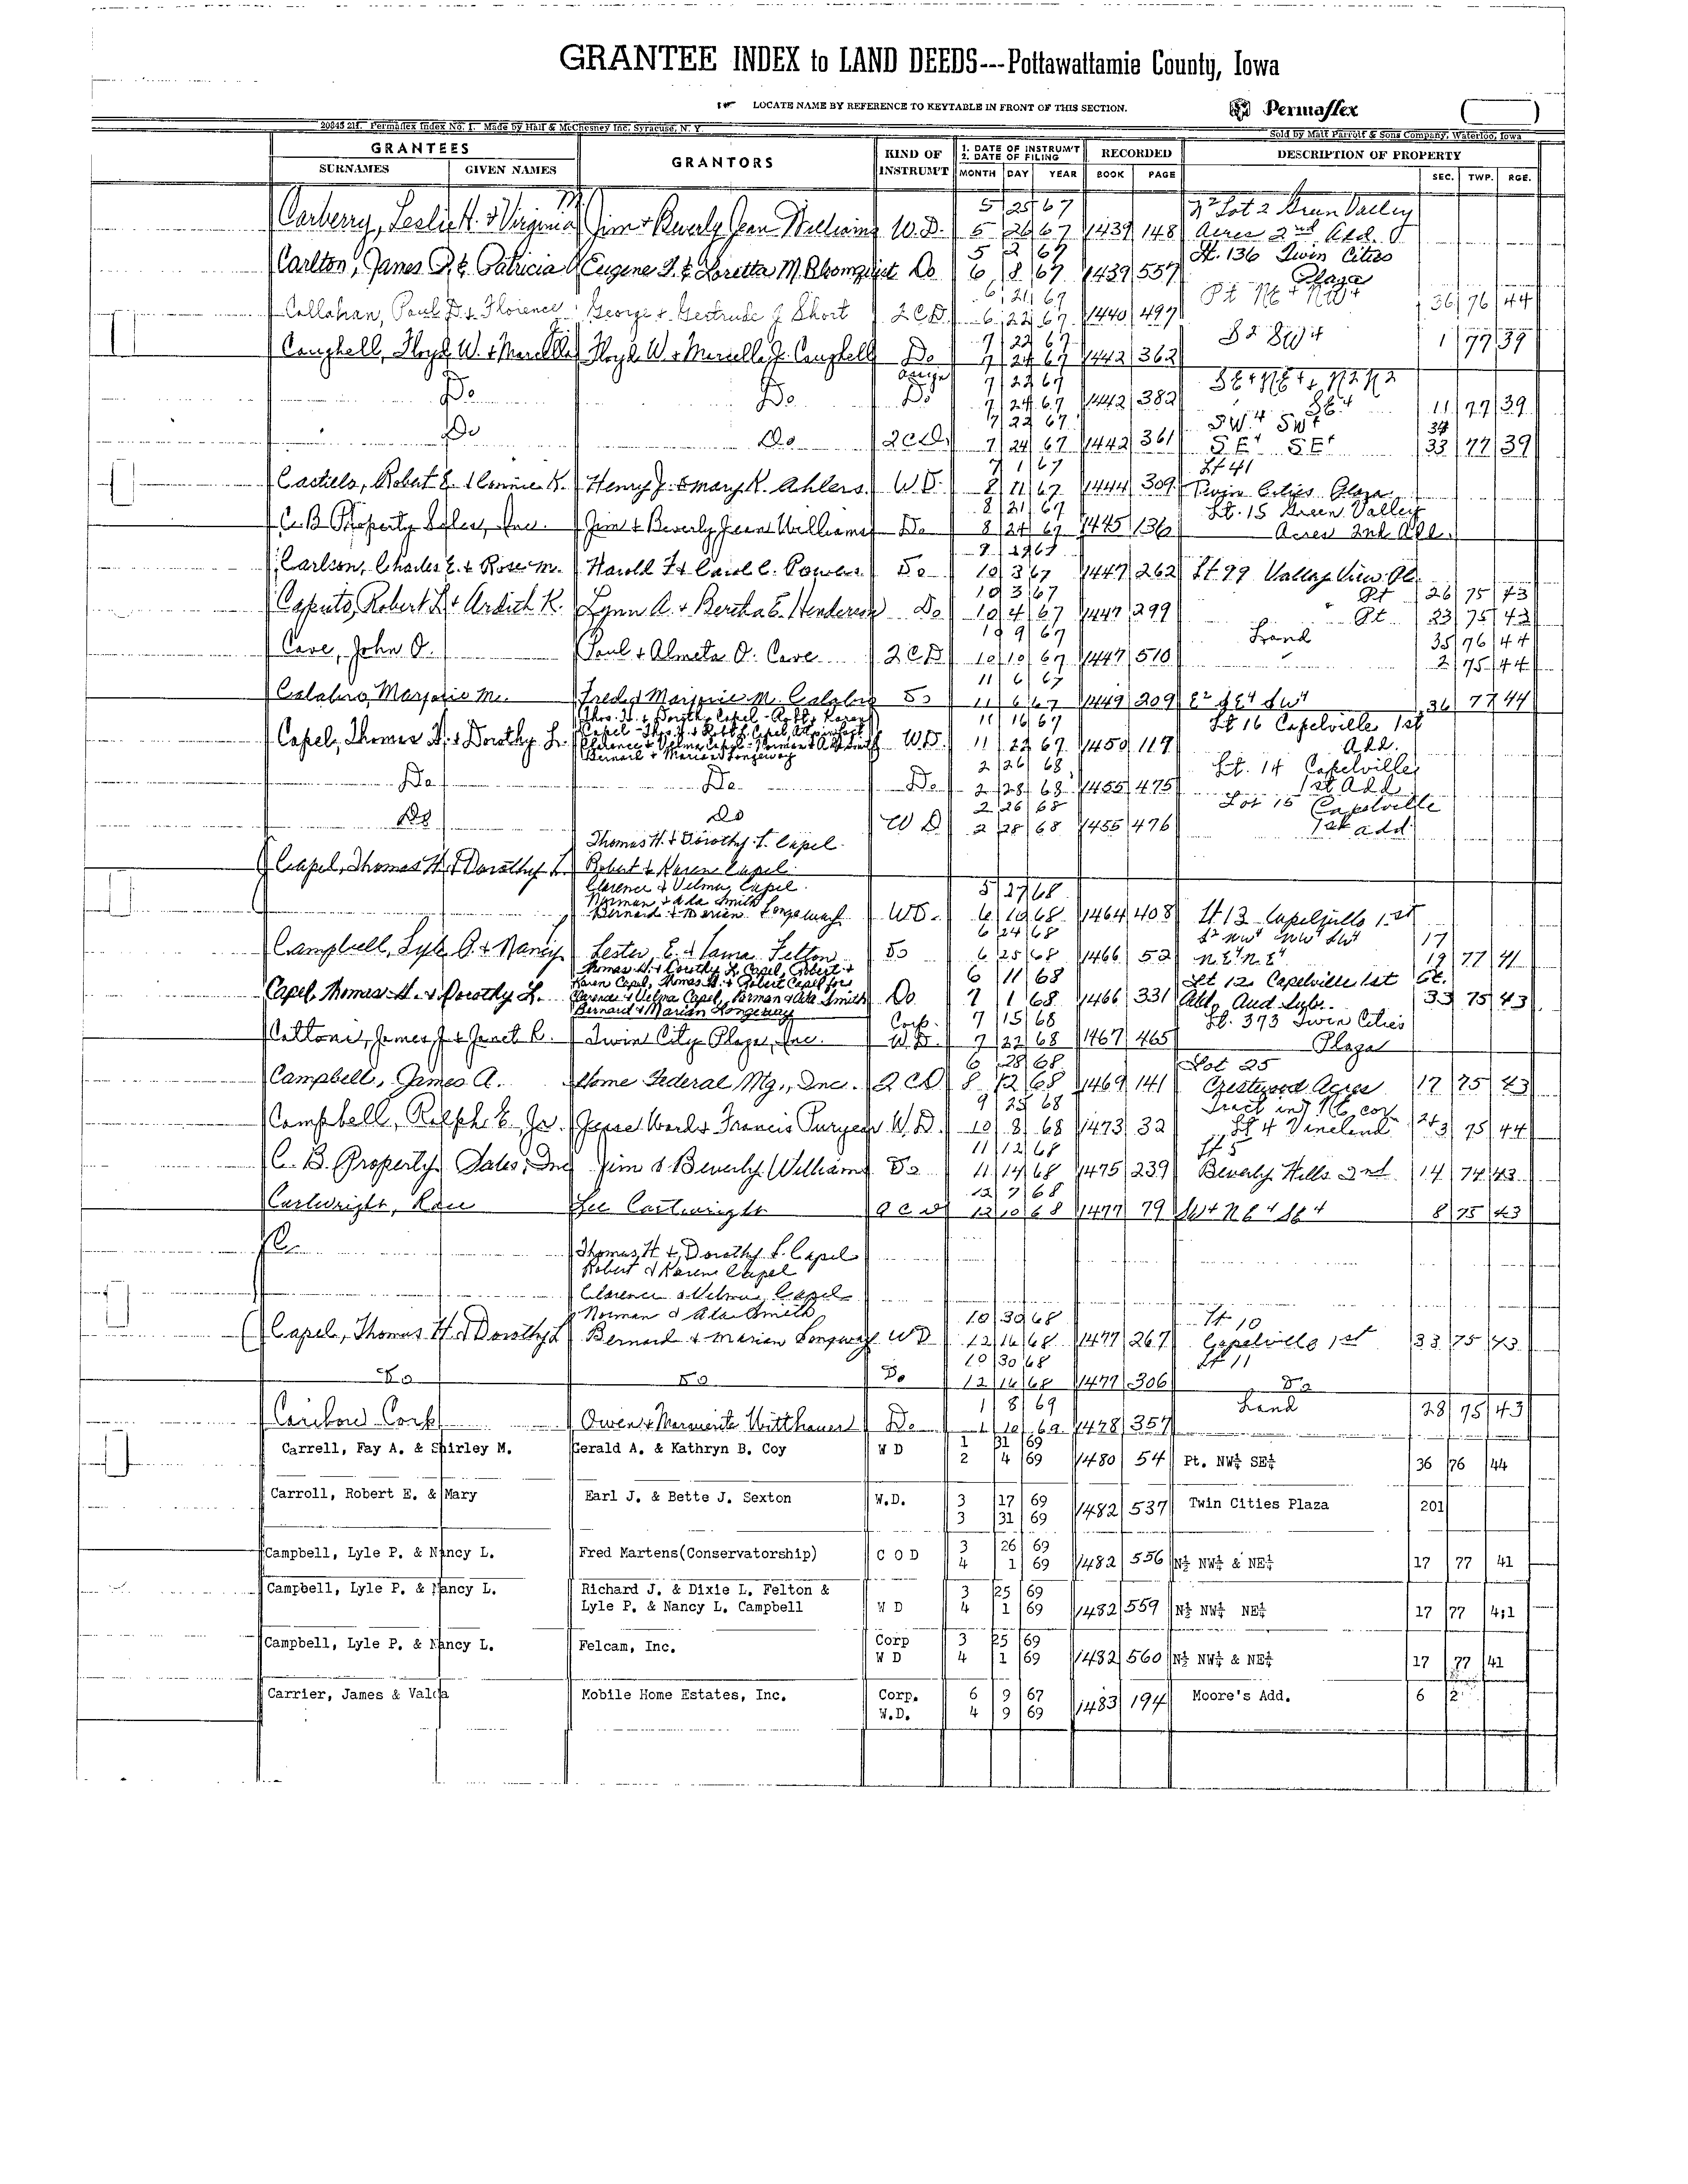 GRANTEE INDEX to LAND DEEDS---Pottawattamie County, Iowa
LOCATE NAME BY REFERENCE TO KEYTABLE IN FRONT OF THIS SECTION.
Permaflex
20845 21f. Permaflex Index No. 1. Made by Hall & McChesney Inc. Syracuse, N. Y.
Sold by Matt Parrott & Sons Company, Waterloo, Iowa
GRANTEES GRANTORS KIND OF INSTRUM'T 1. DATE OF INSTRUM'T 2. DATE OF FILING RECORDED DESCRIPTION OF PROPERTY
SURNAMES GIVEN NAMES MONTH DAY YEAR BOOK PAGE SEC. TWP. RGE.
5 25 67 Lot 2 Green Valley
Carberry, Leslie H. & Virginia M Jim & Beverly Jean Williams W.D. 5 26 67 1439 148 Acres 2nd Add.
5 2 67 Lt. 136 Twin Cities
Carlton, James P. & Patricia Eugene J. & Loretta M. Blomquist Do 6 8 67 1439 557 Plaza
6 21 67
Callahan, Paul D. & Florence George & Gertrude J Short 2CD 6 22 67 1440 497 36 76 44
7 22 67 S2 SW4 1 77 39
Campbell, Floyd W. & Floyd W. & Marcella J. Campbell Do 7 24 67 1442 362
7 22 67
Do Do Do 7 24 67 1442 382 SE4 11 77 39
7 22 67 SW4 SW4 34
Do Do 2CD 7 24 67 1442 361 SE4 SE4 33 77 39
7 1 67 Lt 41
Robert E. & Connie K. Henry J. & Mary K. Ahlers WD 8 11 67 1444 309 Twin Cities Plaza
8 21 67 Lt. 15 Green Valley
C. B Property Sales, Inc. Jim & Beverly Jean Williams Do 8 24 67 1445 136 Acres 2nd Add.
Carlson, Charles E. & Rose M. Harold F & Carol C. Powers Do 10 3 67 1447 262 Lt 99 Valley View
10 3 67 Pt 26 75 43
Caputo, Robert L & Ardith K. Lynn A. & Bertha E. Henderson Do 10 4 67 1447 299 Pt. 23 75 43
10 9 67 Land 35 76 44
Cave, John O. Paul & Almeta O. Cave 2CD 10 10 67 1447 510 2 75 44
11 6 67
Calabro, Marjorie M. Fred & Marjorie M. Calabro Do 11 6 67 1449 209 E2 SE4 SW4 36 77 44
Thos. H. & Dorothy Capel - Robt & Karen
Capel - Thos. H. & Robt Capel, 11 16 67 Lt 16 Capelville 1st
Capel, Thomas H. & Dorothy L. Clarence & Velma Capel - Norman & Ada Smith WD. 11 22 67 1450 119 Add.
Bernard & Marian Longeway
2 26 68 Lt. 14 Capelville
Do Do Do 2 28 68 1455 475 1st Add
2 26 68 Lot 15 Capelville
Do Do W D 2 28 68 1455 476 1st add
Thomas H. & Dorothy L. Capel
Capel, Thomas H. & Dorothy L. Robert & Karen Capel
Clarence & Velma Capel
Norman & Ada Smith 5 27 68
Bernard & Marian Longeway WD. 6 19 68 1464 408 Lt 13 Capelville 1st
6 24 68 17
Campbell, Lyle P. & Nancy Lester E. & Felton Do 6 25 68 1466 52 NE4 NE4 19 77 41
Thomas H. & Dorothy L. Capel, Robert &
Karen Capel, Thomas H. & Robert Capel for 6 11 68 Lt 12 Capelville 1st
Capel, Thomas H. & Dorothy L. Clarence & Velma Capel, Norman & Ada Smith Do 7 1 68 1466 331 Add. Aud. Subr. 33 75 43
Bernard & Marian Longeway
Corp. 7 15 68 Lt. 373 Twin Cities
James J & Janet R. Twin City Plaza, Inc. W.D. 7 22 68 1467 465 Plaza
6 28 68 Lot 25
Campbell, James A. Home Federal Mtg., Inc. 2CD 8 12 68 1469 141 Crestwood Acres 17 75 43
9 25 68 Tract in NE cor
Campbell, Ralph E., Jr. Francis Puryear W.D. 10 8 68 1473 32 Lt 4 Vineland 75 44
11 12 68 Lt 5
C. B. Property Sales, Inc Jim & Beverly Williams Do 11 14 68 1475 239 Beverly Hills 2nd 14 74 43
12 7 68
Cartwright, Lee Cartwright QCD 12 10 68 1477 79 8 75 43
Thomas H. & Dorothy L. Capel
Robert & Karen Capel
Clarence & Velma Capel
Norman & Ada Smith 10 30 68 Lt 10
Capel, Thomas H. & Dorothy L Bernard & Marian Longeway WD 12 16 68 1477 267 Capelville 1st 33 75 43
10 30 68 Lt 11
Do Do Do 12 16 68 1477 306 Do
1 8 69 Land 28 75 43
Caribou Corp Owen & Marguerite Witthauer Do 1 10 69 1478 357
Carrell, Fay A. & Shirley M. Gerald A. & Kathryn B. Coy W D 1 31 69
2 4 69 1480 54 Pt. NW¼ SE¼ 36 76 44
Carroll, Robert E. & Mary Earl J. & Bette J. Sexton W.D. 3 17 69
3 31 69 1482 537 Twin Cities Plaza 201
Campbell, Lyle P. & Nancy L. Fred Martens(Conservatorship) C O D 3 26 69
4 1 69 1482 556 N½ NW¼ & NE¼ 17 77 41
Campbell, Lyle P. & Nancy L. Richard J. & Dixie L. Felton & 3 25 69
Lyle P. & Nancy L. Campbell W D 4 1 69 1482 559 N½ NW¼ NE¼ 17 77 4;1
Campbell, Lyle P. & Nancy L. Felcam, Inc. Corp 3 25 69
W D 4 1 69 1482 560 N½ NW¼ & NE¼ 17 77 41
Carrier, James & Valda Mobile Home Estates, Inc. Corp. 6 9 67
W.D. 4 9 69 1483 194 Moore's Add. 6 2